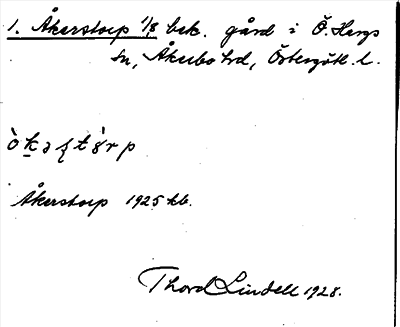 1. Åkerstorp 1/8 bek. gård i Ö. Hargs
sn, Åkerbo hd, Östergötl. l.
Åkerstorp 1925 kb.
Thord Lindell 1928.